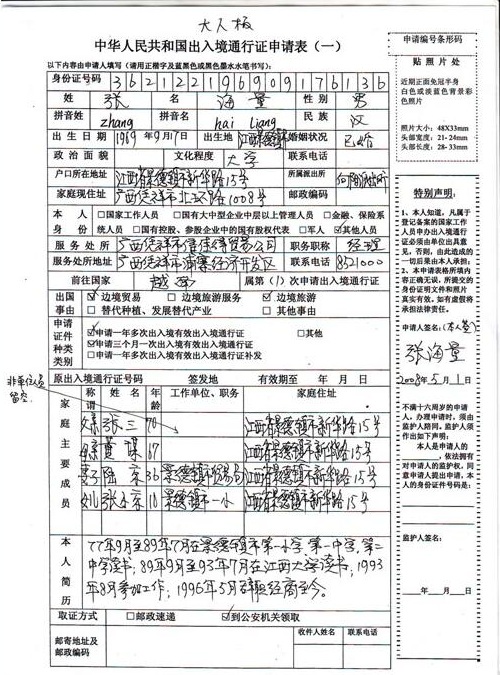 大人板
中华人民共和国出入境通行证申请表（一）
以下内容由申请人填写（请用正楷字及蓝黑色或黑色墨水水笔书写）：
身份证号码 362122196909176136
姓 张 名 海量 性别 男
拼音姓 zhang 拼音名 hai liang 民族 汉
出生日期 1969年9月17日 出生地 江西景德镇 婚姻状况 已婚
政治面貌 文化程度 大学 联系电话
户口所在地址 江西省景德镇市新华路15号 所属派出所
家庭现住址 广西凭祥市北大路1008号 邮政编码
本人身份 □国家工作人员 □国有大中型企业中层以上管理人员 □金融、保险系
统人员 □国有控股、参股企业中的国有股权代表 □军人 ☑其他人员
服务处所 职务职称 经理
服务处所地址 广西凭祥市浦寨经济开发区 联系电话 8521000
前往国家 越南 属第（1）次申请出入境通行证
出国事由 ☑边境贸易 □边境旅游服务 ☑边境旅游
□替代种植、发展替代产业 □其他事由
申请证件种类类别
☑申请一年多次出入境有效出入境通行证 □其他
□申请三个月一次出入境有效出入境通行证
□申请一年多次出入境有效出入境通行证补发
原出入境通行证号码 签发地 有效期至 年 月 日
非单位人员留空
家庭主要成员
称谓 姓名 年龄 工作单位、职务 家庭住址
张三 70 江西省景德镇市新华路15号
67 江西省景德镇市新华路15号
妻子 36 景德镇市贸易局 江西省景德镇市新华路15号
女儿 10 景德镇市一小 江西省景德镇市新华路15号
本人简历
77年9月至89年7月在景德镇市第一小学，第一中学，第二
中学读书；89年9月至93年7月在江西大学读书；1993
年8月参加工作；1996年5月辞职经商至今。
取证方式 □邮政速递 ☑到公安机关领取
邮寄地址及邮政编码 收件人姓名 联系电话
申请编号条形码
贴照片处
近期正面免冠半身
白色或淡蓝色背景彩
色照片
照片大小：48X33mm
头部宽度：21-24mm
头部长度：28-33mm
特别声明：
1、本人知道，凡属于
登记备案的国家工作
人员申办出入境通行
证必须由单位出具意
见，否则，由此造成的
一切后果由本人承担；
2、本申请表格所填内
容正确无误，所提交的
身份证明文件和照片
真实有效，如有虚假将
承担法律责任。
申请人签名：（本人签）
张海量
2008年5月1日
不满十六周岁的申请
人，办理申请时，须由
监护人陪同。监护人须
作出如下声明：
本人是申请人的
，依法拥有
对申请人的监护权，同
意申请人提出申请，本
人的身份证件号是：
监护人签名：
年 月 日